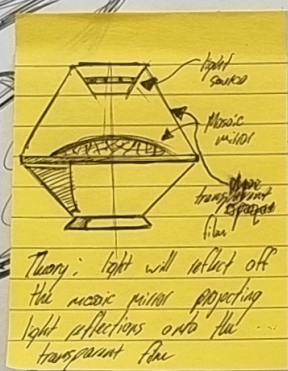 light
source
Mosaic
mirror
transparent
film
Theory: light will reflect off
the mosaic mirror projecting
light reflections onto the ...
transparent film